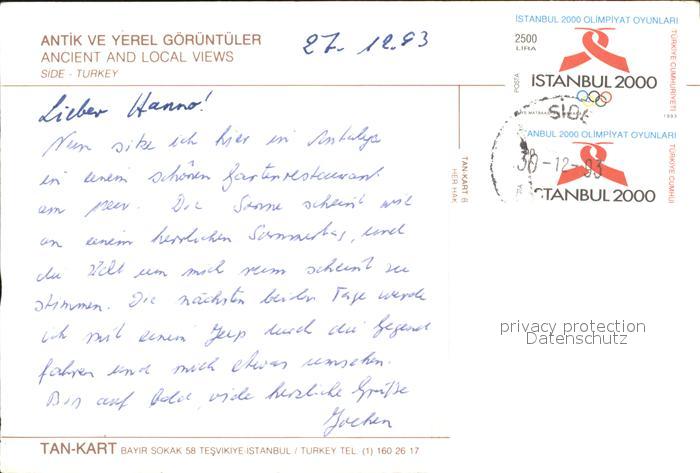 ANTİK VE YEREL GÖRÜNTÜLER
ANCIENT AND LOCAL VIEWS
SIDE - TURKEY
27. 12. 93
Lieber Hanno!
Nun sitze ich hier in Antalya
in einem schönen Gartenrestaurant
am Meer. Die Sonne scheint wie
an einem herrlichen Sommertag, und
die Welt um mich rum scheint zu
stimmen. Die nächsten beiden Tage werde
ich mit einem Jeep durch die Gegend
fahren und mich etwas umsehen.
Bis auf bald, viele herzliche Grüße
Jochen
TAN-KART BAYIR SOKAK 58 TEŞVIKIYE-ISTANBUL / TURKEY TEL. (1) 160 26 17
TAN-KART
HER HAK
İSTANBUL 2000 OLİMPİYAT OYUNLARI
2500
LIRA
POSTA
TÜRKİYE CUMHURİYETİ
İSTANBUL 2000
1993
SİDE
İSTANBUL 2000 OLİMPİYAT OYUNLARI
30-12-93
TÜRKİYE CUMHU
İSTANBUL 2000
privacy protection
Datenschutz